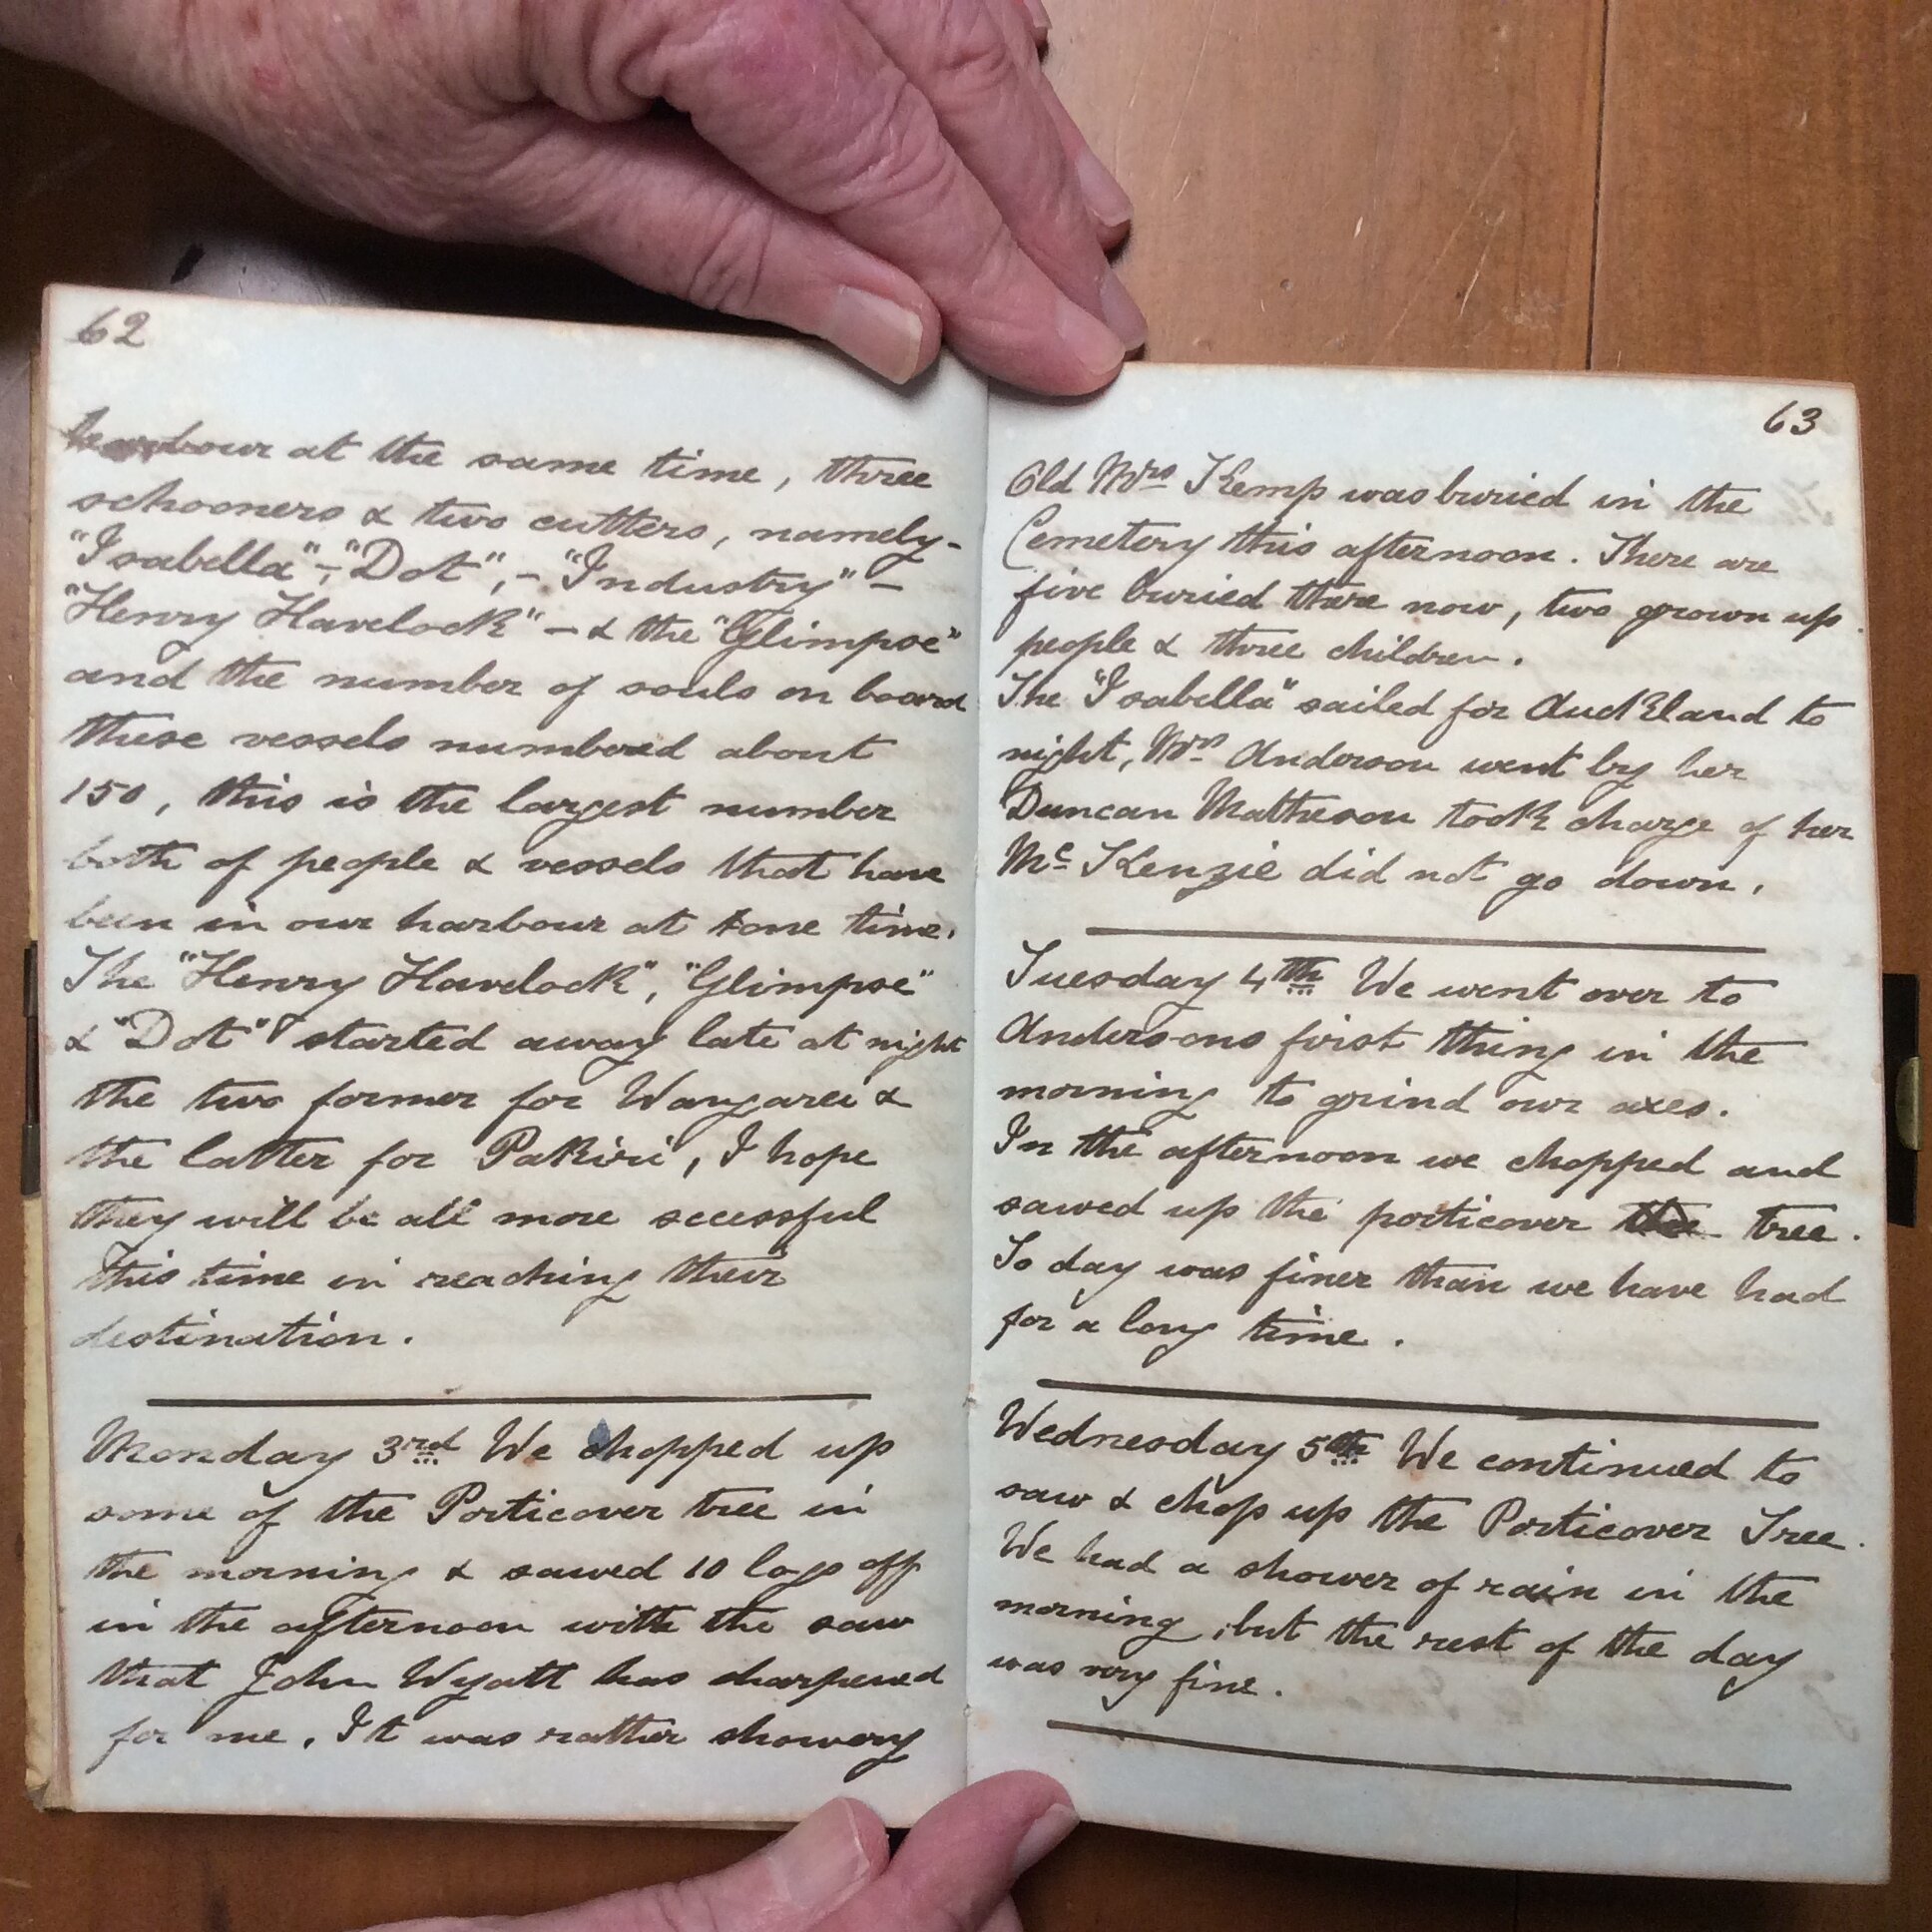 62
harbour at the same time, three
schooners & two cutters, namely-
"Isabella"-,"Dot",- "Industry" -
"Henry Havelock" - & the "Glimpse"
and the number of souls on board
these vessels numbered about
150, this is the largest number
both of people & vessels that have
been in our harbour at one time.
The "Henry Havelock", "Glimpse"
& "Dot" started away late at night
the two former for Wangarei &
the latter for Pakiri, I hope
they will be all more secessful
this time in reaching their
destination.
Monday 3rd We chopped up
some of the Porticover tree in
the morning & sawed 10 logs off
in the afternoon with the saw
that John Wyatt has sharpened
for me. It was rather showery
63
Old Mrs Kemp was buried in the
Cemetery this afternoon. There are
five buried there now, two grown up
people & three children.
The "Isabella" sailed for Auckland to
night, Mrs Anderson went by her
Duncan Matheson took charge of her
Mc Kenzie did not go down.
Tuesday 4th We went over to
Andersons first thing in the
morning to grind our axes.
In the afternoon we chopped and
sawed up the porticover tree.
To day was finer than we have had
for a long time.
Wednesday 5th We continued to
saw & chop up the Porticover Tree.
We had a shower of rain in the
morning, but the rest of the day
was very fine.